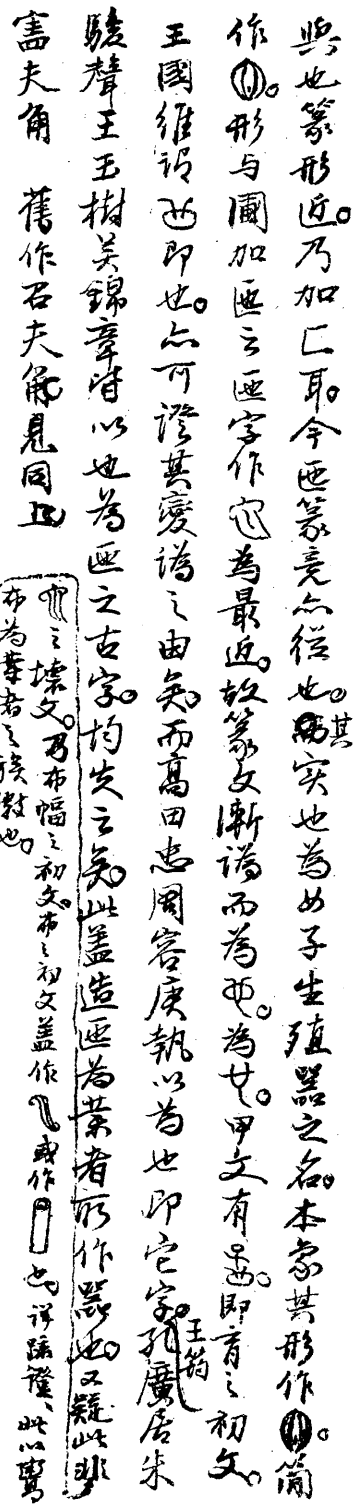 與也篆形近。乃加匚耳。今匜篆竟亦從也。其實也為女子生殖器之名。本象其形作。籀
作。形与圃加匜之匜字作為最近。故篆文漸譌而為也。為。甲文有。即育之初文。
王國維謂即也。亦可證其變譌之由矣。而高田忠周容庚執以為也即它字。王筠孔廣居朱
駿聲王玉樹吳錦章皆以也為匜之古字。均失之矣。此蓋造匜為業者所作器也。又疑此非
之壞文。乃布幅之初文。布之初文蓋作或作也。詳疏證。此以鬻
布為業者之族徽也。
害夫角 舊作召夫角。見同上。